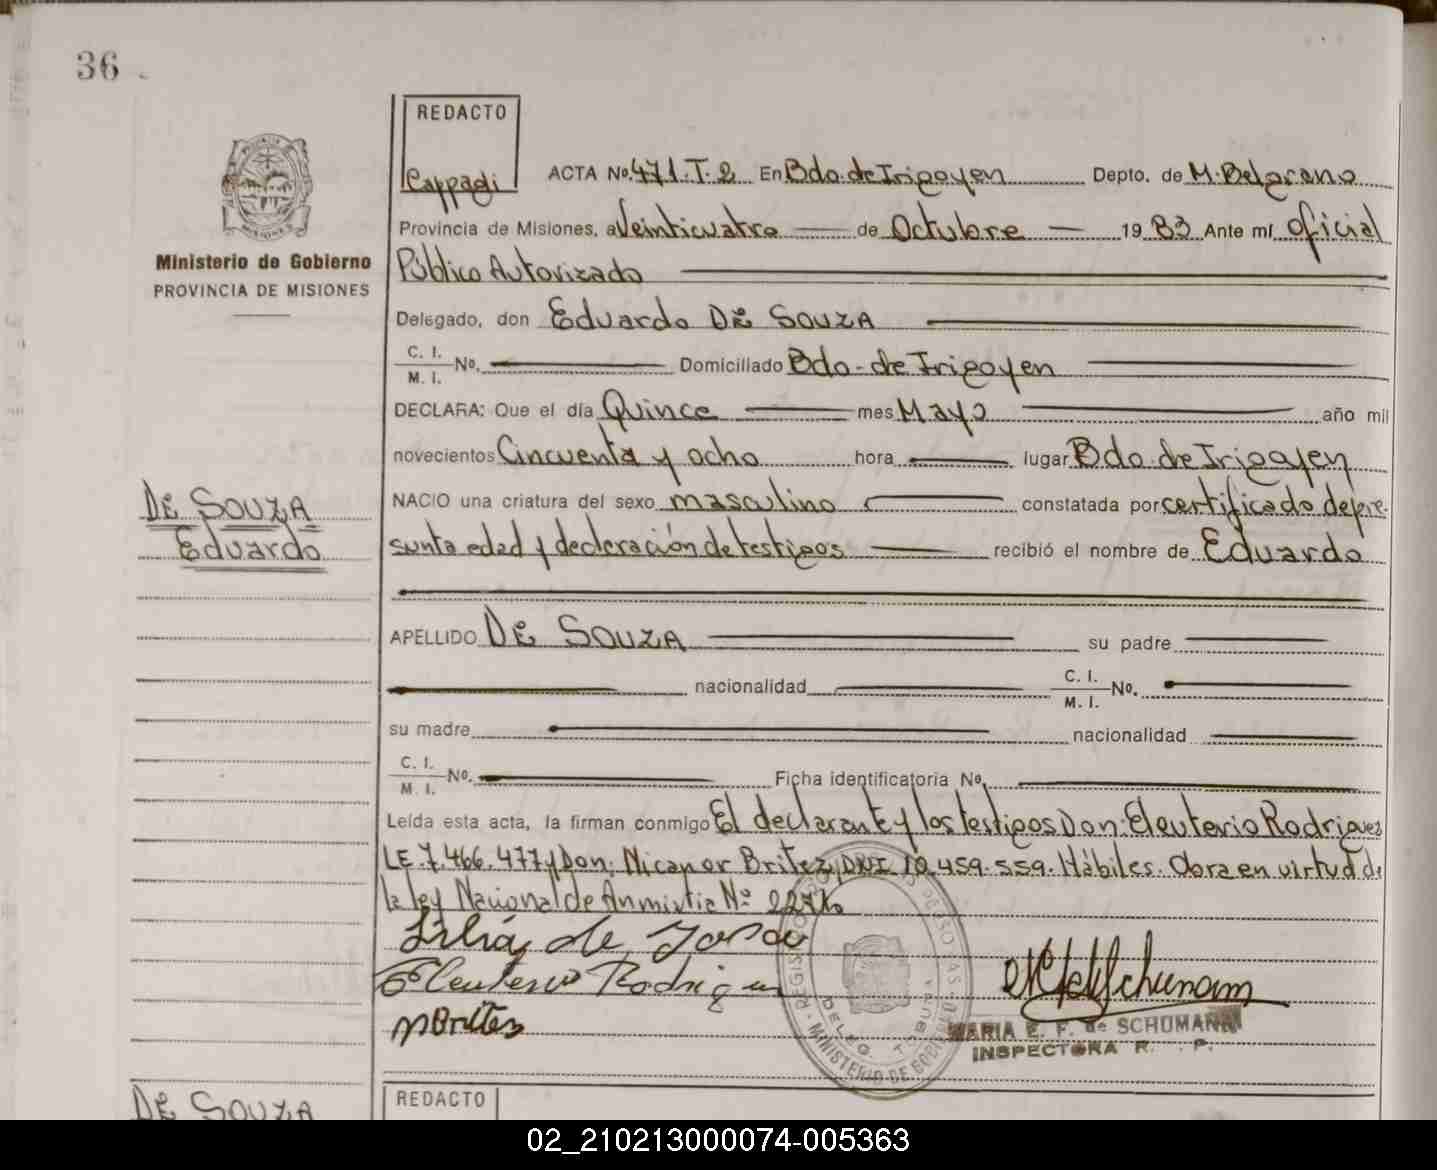 36
REDACTO
Cappadi
ACTA No. 471. T. 2 En Bdo. de Irigoyen Depto. de M. Belgrano
Provincia de Misiones, a Veinticuatro de Octubre 19 83 Ante mí oficial
Público Autorizado
Ministerio de Gobierno
PROVINCIA DE MISIONES
Delegado, don Eduardo DE SOUZA
C. I.
M. I. No. Domiciliado Bdo. de Irigoyen
DECLARA: Que el día Quince mes Mayo año mil
novecientos Cincuenta y ocho hora lugar Bdo de Irigoyen
DE SOUZA
Eduardo
NACIO una criatura del sexo masculino constatada por certificado de pre-
sunta edad y declaración de testigos recibió el nombre de Eduardo
APELLIDO DE SOUZA su padre
nacionalidad C. I.
M. I. No.
su madre nacionalidad
C. I.
M. I. No. Ficha identificatoria No.
Leída esta acta, la firman conmigo El declarante y los testigos Don. Eleuterio Rodriguez
LE. 7.466.477 y Don; Nicanor Britez DNI 10.459.559. Hábiles. Obra en virtud de
la ley Nacional de Anmistia Nº
Eleuterio Rodriguez
MBritez
MARIA E. F. de SCHUMANN
INSPECTORA R. P.
MINISTERIO DE GOBIERNO
REDACTO
DE SOUZA
02_210213000074-005363